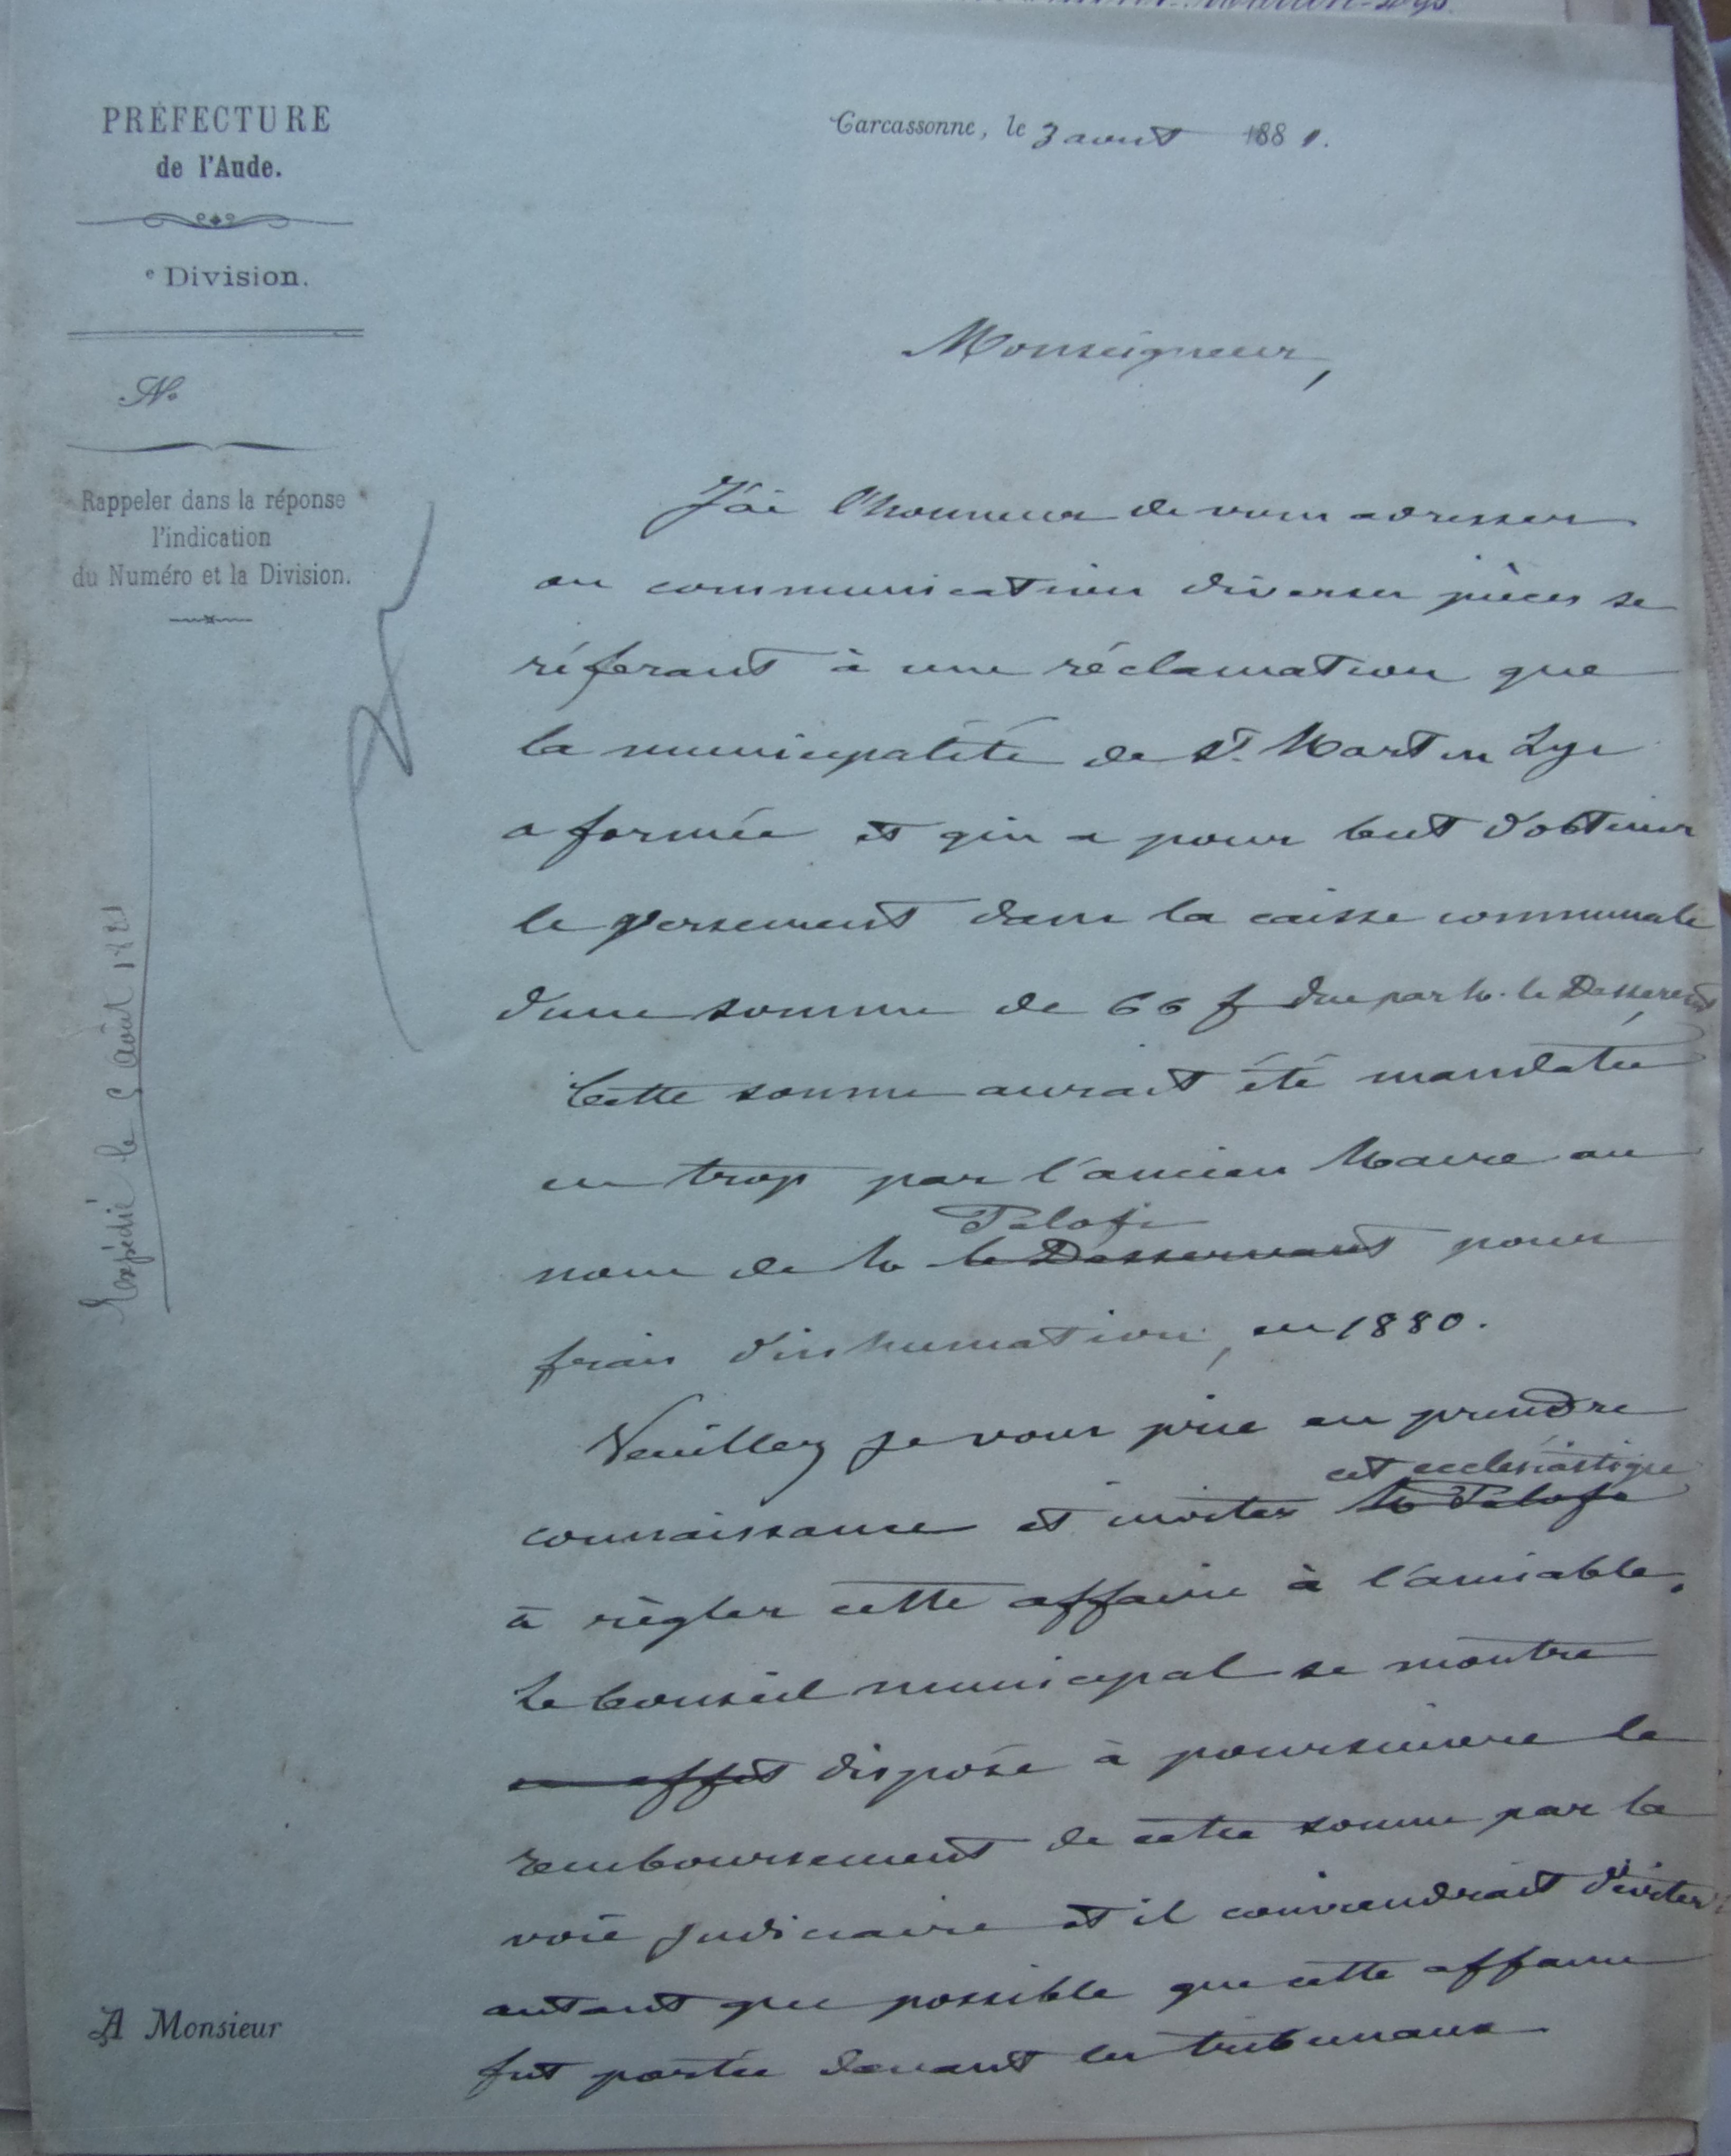 PRÉFECTURE
de l'Aude.
e Division.
N°
Rappeler dans la réponse
l'indication
du Numéro et la Division.
Expédié le 5 août 1881
A Monsieur
Carcassonne, le 3 aout 1881.
Monseigneur,
J'ai l'honneur de vous adresser
en communication diverses pièces se
référant à une réclamation que
la municipalité de St. Martin Lys
a formée et qui a pour but d'obtenir
le versement dans la caisse communale
d'une somme de 66 f due par M. le Desservant
Cette somme aurait été mandatée
en trop par l'ancien Maire au
Pelofi
nom de M le Desservant pour
frais d'inhumation, en 1880.
Veuillez je vous prie en prendre
cet ecclésiastique
connaissance et inviter M Pelofi
à règler cette affaire à l'amiable.
Le Conseil municipal se montre
en effet disposé à poursuivre le
remboursement de cette somme par la
voie judiciaire et il conviendrait d'éviter
autant que possible que cette affaire
fut portée devant les tribunaux